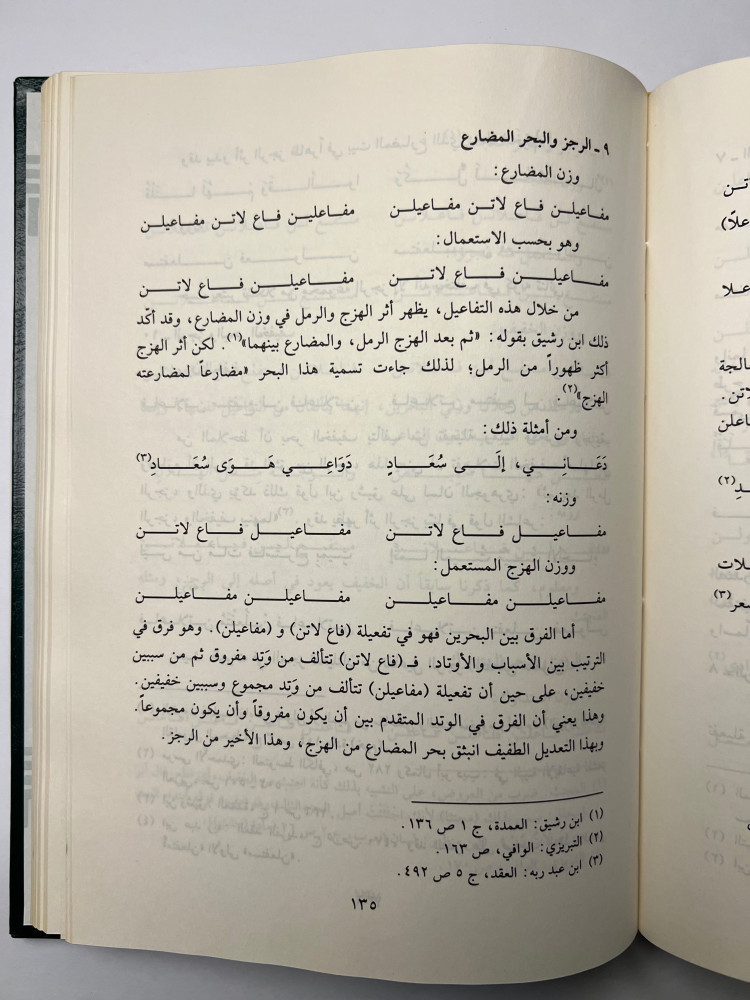 ٩ ـ الرجز والبحر المضارع
وزن المضارع :
مفاعيلـن فـاع لاتـن مفـاعيلـن مفـاعلـين فـاع لاتـن مفـاعيلـن
وهو بحسب الاستعمال:
مفـاعيلـن فـاع لاتـن مفـاعيلـن فـاع لاتـن
من خلال هذه التفاعيل، يظهر أثر الهزج والرمل في وزن المضارع، وقد أكّد
ذلك ابن رشيق بقوله: «ثم بعد الهزج الرمل، والمضارع بينهما»(١). لكن أثر الهزج
أكثر ظهوراً من الرمل؛ لذلك جاءت تسمية هذا البحر «مضارعاً لمضارعته
الهزج»(٢).
ومن أمثلة ذلك:
دَعَـانِـي، إلَـى سُعَـادٍ دَوَاعِـي هَـوَى سُعَـادِ(٣)
وزنه:
مفـاعيـل فـاع لاتـن مفـاعيـل فـاع لاتـن
ووزن الهزج المستعمل:
مفـاعيلـن مفـاعيلـن مفـاعيلـن مفـاعيلـن
أما الفرق بين البحرين فهو في تفعيلة (فاع لاتن) و (مفاعيلن). وهو فرق في
الترتيب بين الأسباب والأوتاد. فـ (فاع لاتن) تتألف من وَتِد مفروق ثم من سببين
خفيفين، على حين أن تفعيلة (مفاعيلن) تتألف من وَتِد مجموع وسببين خفيفين.
وهذا يعني أن الفرق في الوتد المتقدم بين أن يكون مفروقاً وأن يكون مجموعاً.
وبهذا التعديل الطفيف انبثق بحر المضارع من الهزج، وهذا الأخير من الرجز.
(١) ابن رشيق: العمدة، ج ١ ص ١٣٦ .
(٢) التبريزي: الوافي، ص ١٦٣ .
(٣) ابن عبد ربه: العقد، ج ٥ ص ٤٩٢ .
١٣٥